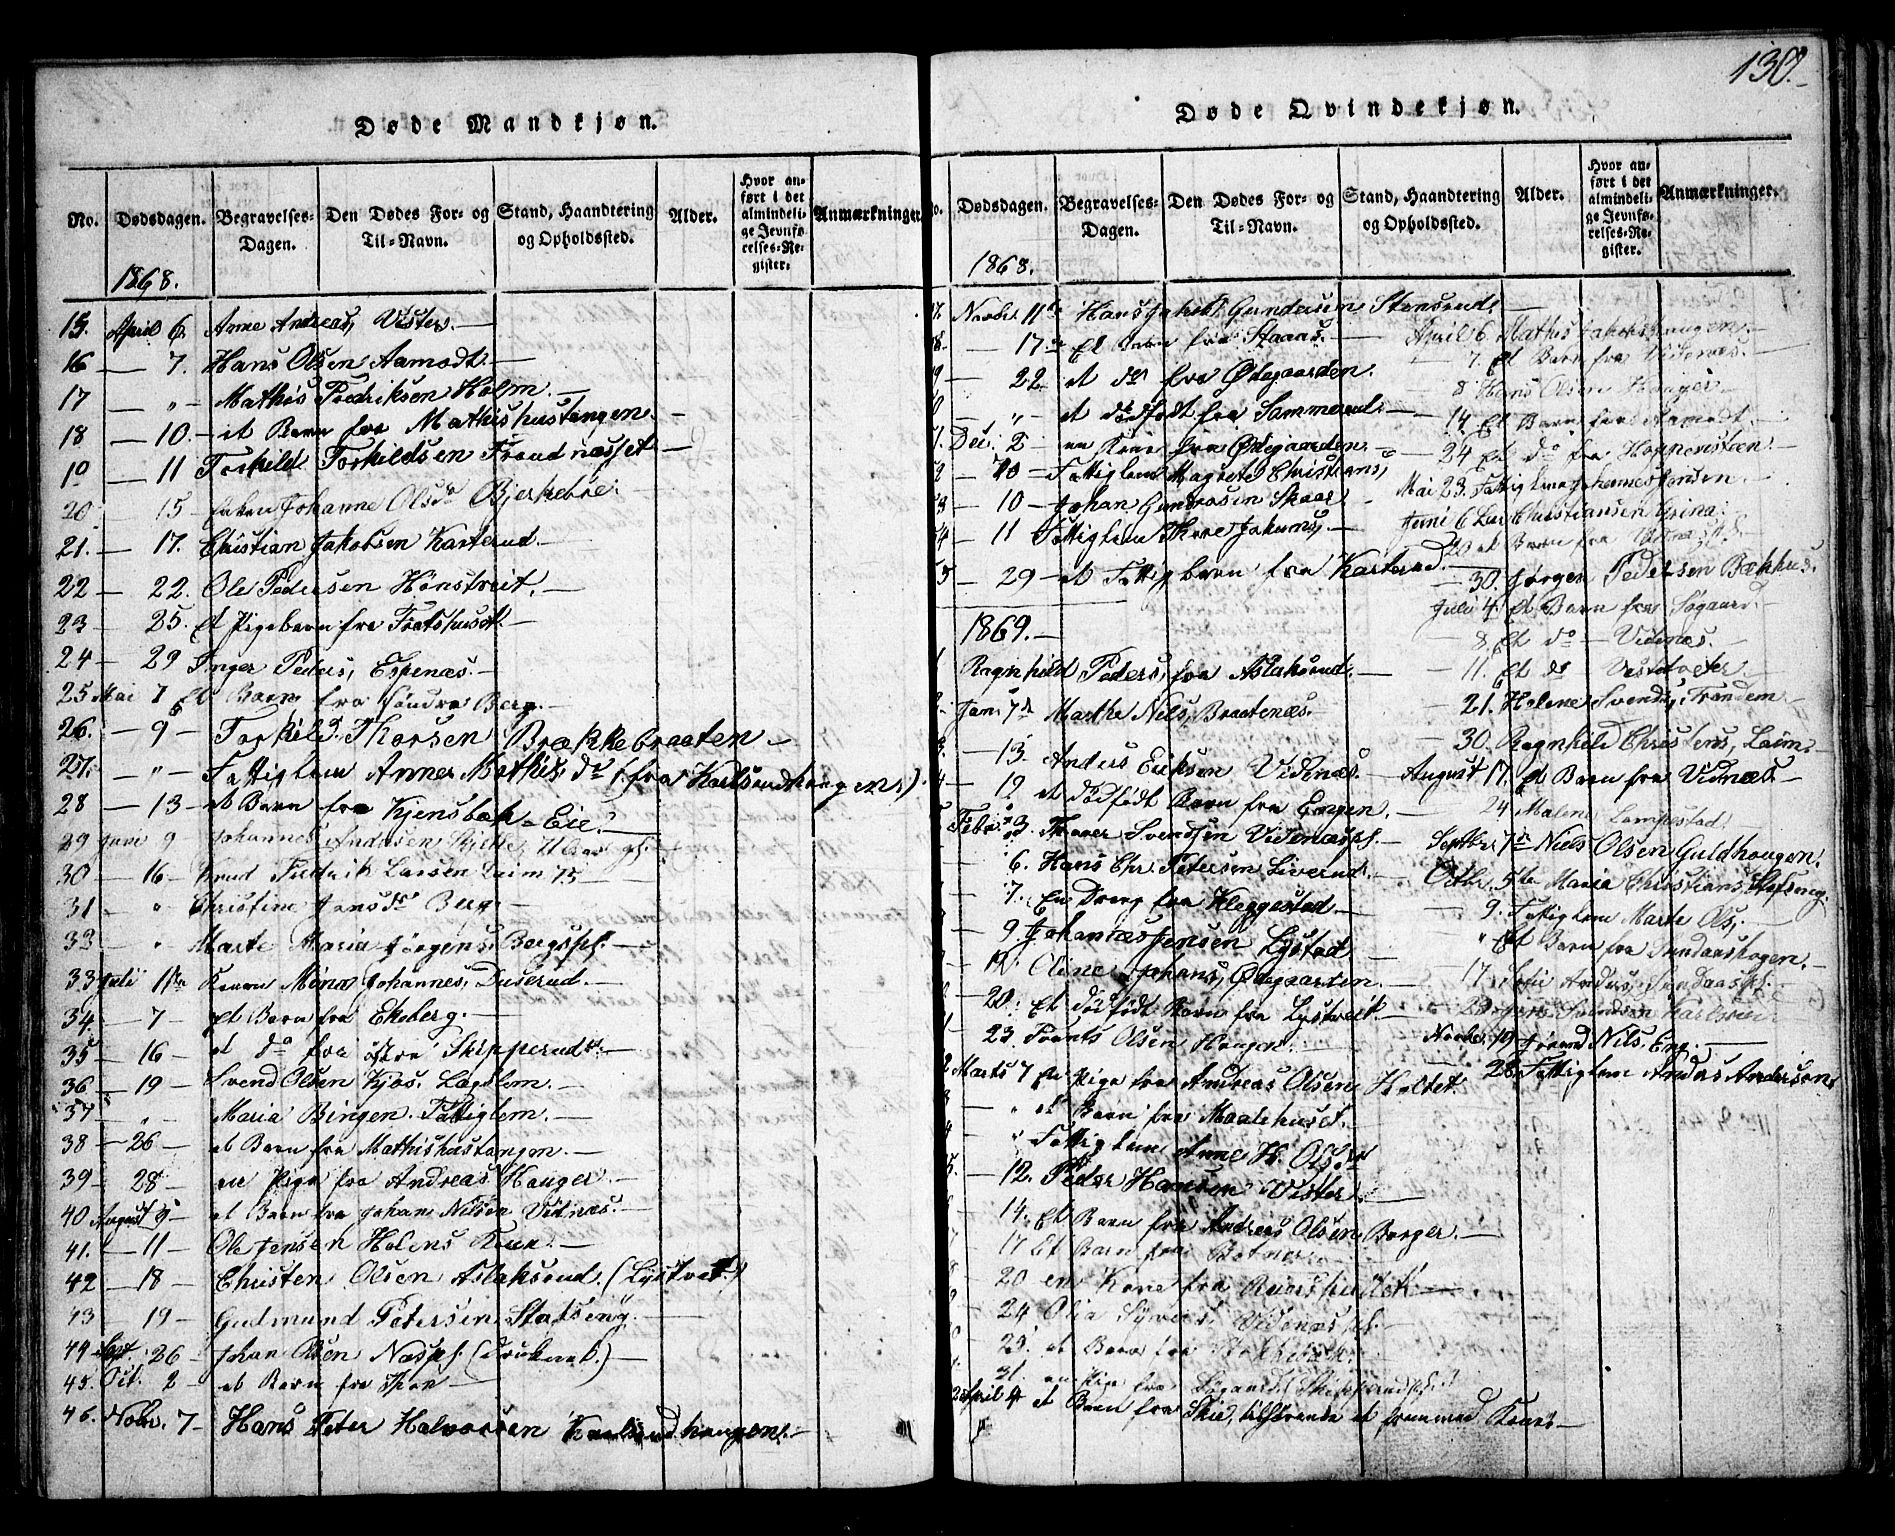 130.
Døde Mandkjøn.
No. Dødsdagen. Begravelses-Dagen. Den Dødes For- og Til-Navn. Stand, Haandtering og Opholdssted. Alder. Hvor anført i det almindelige Jevnførelses-Register. Anmærkninger.
1868.
15. April 6. Anne Andreas, Vister.—
16 — 7. Hans Olsen Aamodt.—
17 — „ – Mathis Fredriksen Holm.—
18 — 10. – et Barn fra Mathishustangen.—
19 — 11 Torkild Torkildsen Froudnæsset—
20 15 Enken Johanne Olsdr Bjerkebøe.
21. — 17. Christian Jakobsen Karterud.—
22 — 22. Ole Pedersen Hønstveit.—
23 — 25. Et Pigebarn fra Fretshuset.—
24 — 29 Inger Peders, Espenæs.—
25 Mai 1 Et Barn fra søndre Berg.—
26. — 9 – Torkild Thorsen Brækkebraaten—
27. — „ – Fattiglem Anne Mathisdr (fra Karlsrudhaugen.)
28 — 13 – et Barn fra Kjensbak-Eie.—
29 Juni 9 Johannes Andersen
30 — 16 – Knud Fredrik Larsen Leim 75—
31 — „ Christine Jensdr Berg.—
33 — „ Marte Maria Jørgens, Bergspl.—
33 Juli 1ste Karen Mina Johannes, Duserud.—
34. — 7 – Et Barn fra Ekeberg.—
35 — 16 – et do fra østre Skipperud.—
36 — 19 – Svend Olsen Kjøs. Lægslem.—
37 — „ Maria Bingen. Fattiglem.—
38 — 26 – et Barn fra Mathishustangen.—
39 — 28 – en Pige fra Andreas Hauger.—
40 August 5 – et Barn fra Johan Nilsen Vidnæs.—
41. — 11 – Ole Jensen Holens —
42 — 18 – Christen Olsen Aslaksrud. (Lystvet.)
43 19 – Gudmund Petersen Statseng.—
44 Sept. 26 – Johan Olsen Næspl. (druknet.)—
45. Oct. 2 – et Barn fra Thon—
46. Nobr. 7 – Hans Peter Halvorsen Karlsrudhaugen.—
Døde Qvindekjøn.
No. Dødsdagen. Begravelses-Dagen. Den Dødes For- og Til-Navn. Stand, Haandtering og Opholdssted. Alder. Hvor anført i det almindelige Jevnførelses-Register. Anmærkninger.
1868.
7. Novbr. 11te Hans Jakob Gundersen Stensrud.—
8. — 17de Et Barn fra Staaas.—
9 — 22. et do fra Ødegaarden.
0 — „ – et dødfødt fra Sammerud.—
1. Dec. 2 – en Kone fra Ødegaarden.—
2 — 10 – Fattiglem Magrete Christians,
3 — 10 – Johan Gundersen Skaar.—
4 — 11 Fattiglem Thore Jakums,—
5 — 29 – et Fattigbarn fra Karterud.—
1869.—
1 Ragnhild Peders, fra Aslaksrud.—
2. Jan. 7de Marthe Nils, Braatenæs.—
3. — 13. Anders Eriksen Vidnæs.—
4 — 19 et dødfødt Barn fra Engen.—
5 Febr. 3. Thorer Svendsen Vidnæspl.—
6. Hans Chr. Petersen Liverud.—
7. En Dreng fra Kleggestad—
9. Johannes Jensen Lystad
Oline Johans, Ødegaarden.
— 20. Et dødfødt Barn fra Lystveit.—
1 — 23. Frants Olsen Haugen.—
2 Marts 7 En Pige fra Andreas Olsen Holtet.
3 — „ et Barn fra Maalehuset.—
4 „ Fattiglem Anne H. Olsdr
5. — 12. Peder Hansen Vister.—
— 14. Et Barn fra Andreas Olsen Borger.—
17 Et Barn fra Botner.—
8 — 20 en Kone fra
9 — 24. Olia Syvers, Vidnæspl.—
0 — 25. et Barn fra
31. en Pige fra Søgaard, Skipperudspl.
2 April 4 et Barn fra Skie, tilhørende et fremmed
April 6. Mathis Jakobshaugen.—
— 7. Et Barn fra Vidnæs.—
— 8 Hans Olsen Hauger.—
— 14. Et Barn fra Aamodt.—
— 24 Et do fra Hoppensteen—
Mai 23. Fattiglem Johannes Jensen.—
Juni 6 Lars Christiansen Grina.
20 et Barn fra
— 30. Jørgen Pedersen Bækhus.
Juli 4. Et Barn fra Søgaard.—
— 8. Et do – Vidnæs—
— 11. Et do Vestveter
— 21. Helene Svends, Trondem—
— 30. Ragnhild Christens, Leim—
August 17. Et Barn fra Vidnæs—
— 24 Malene Lampestad
Septbr. 7de Niels Olsen Guldhaugen.
Octbr. 5te Maria Christians,
— 9. Fattiglem Marte Ols,
— „ Et Barn fra Sundaashagen.—
— 17. Sofie Anders, Sundaaspl.—
— 29 Svendsen
Novbr. 19 Nils, Eng.—
— 28. Fattiglem Anders Andersen